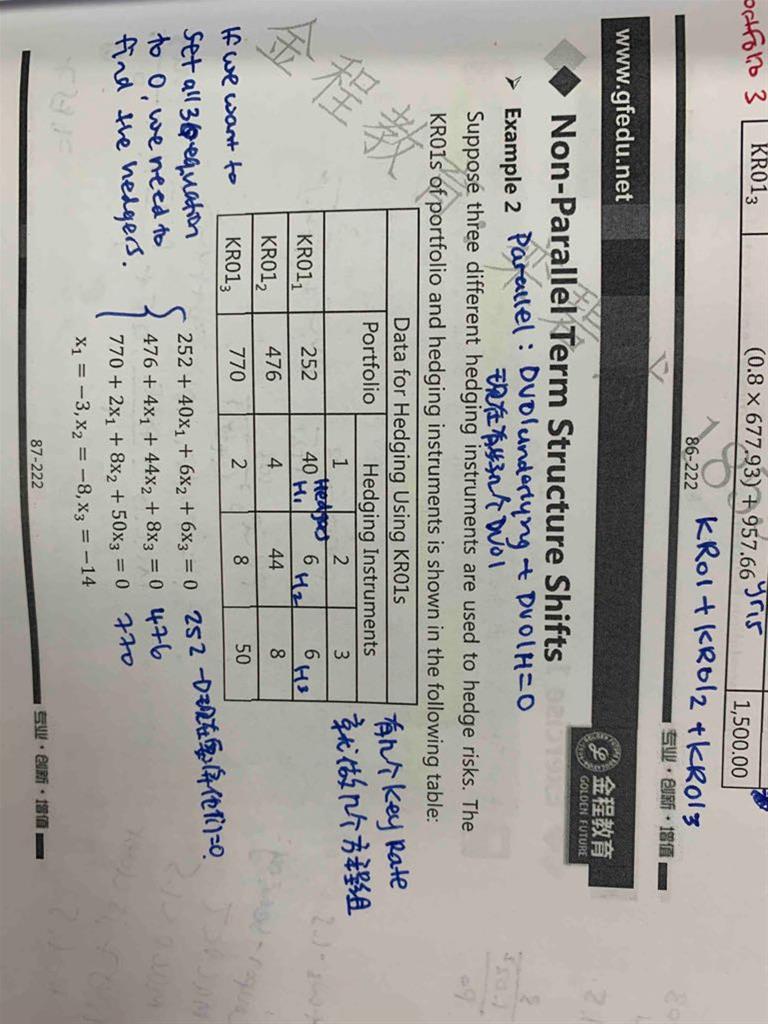 portfolio 3
KR01₃ (0.8 × 677.93) + 957.66 1,500.00
yr15
KR01 + KR012 + KR013
86-222 专业·创新·增值
www.gfedu.net 金程教育
GOLDEN FUTURE
Non-Parallel Term Structure Shifts
Example 2 Parallel: DV01 underlying + DV01H=0
现在有好几个DV01
Suppose three different hedging instruments are used to hedge risks. The
KR01s of portfolio and hedging instruments is shown in the following table:
Data for Hedging Using KR01s
Portfolio Hedging Instruments
1 2 3
Hedges
KR01₁ 252 40 6 6
H1 H2 H3
KR01₂ 476 4 44 8
KR01₃ 770 2 8 50
有几个key rate
就做几个方程组
If we want to
set all 3 equation
to 0, we need to
find the hedgers.
252 + 40x₁ + 6x₂ + 6x₃ = 0 252
476 + 4x₁ + 44x₂ + 8x₃ = 0 476
770 + 2x₁ + 8x₂ + 50x₃ = 0 770
x₁ = −3, x₂ = −8, x₃ = −14
87-222 专业·创新·增值
金程教育